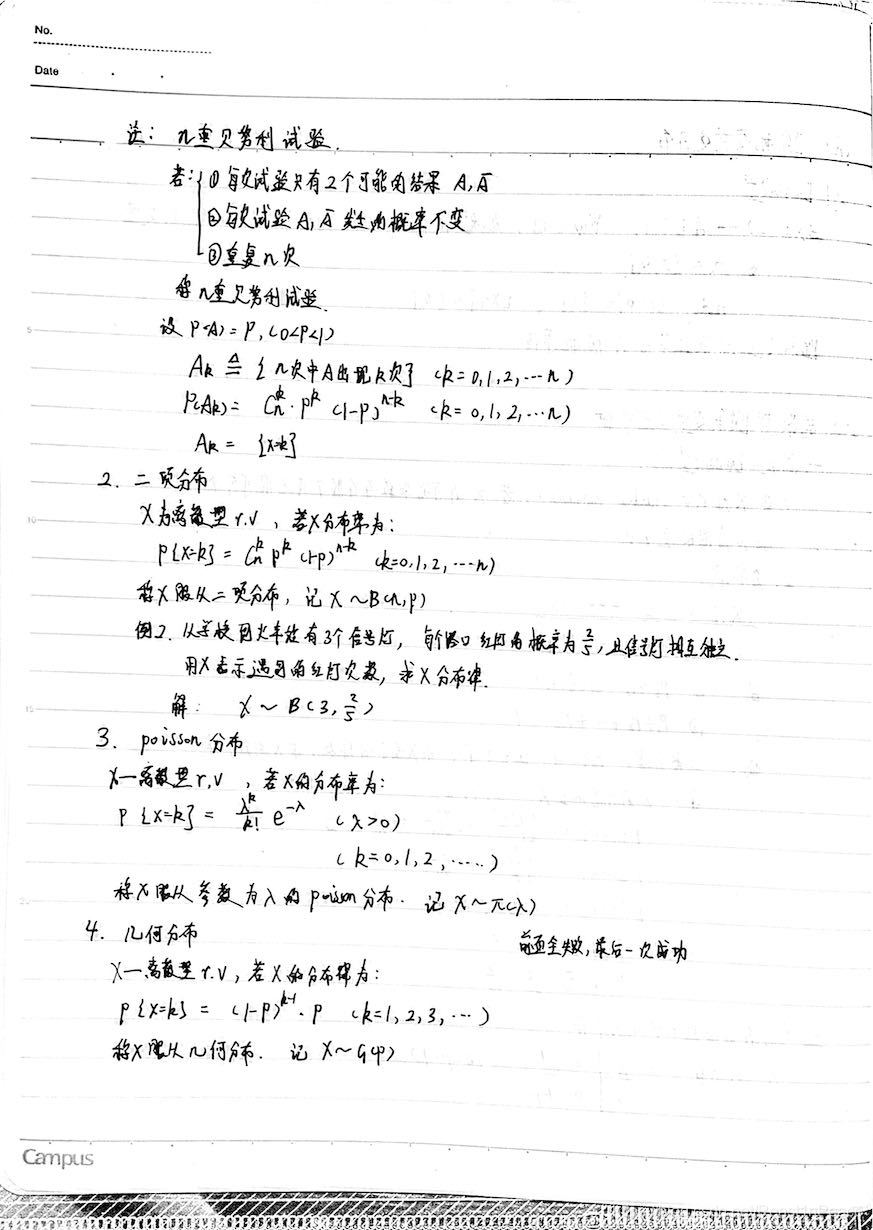 No.
Date
注: n重贝努利试验.
若: ① 每次试验只有2个可能的结果 A, A̅
② 每次试验 A, A̅ 发生的概率不变
③ 重复n次
称n重贝努利试验.
设 P(A) = P, (0<P<1)
Aₖ ≜ {n次中A出现k次} (k=0,1,2,…n)
P(Aₖ) = Cₙᵏ · pᵏ (1-p)ⁿ⁻ᵏ (k=0,1,2,…n)
Aₖ = {x=k}
2. 二项分布
X为离散型r.v, 若X分布率为:
P{X=k} = Cₙᵏ pᵏ (1-p)ⁿ⁻ᵏ (k=0,1,2,…n)
称X服从二项分布, 记 X ~ B(n,p)
例2. 从学校到火车站有3个信号灯, 每个路口红灯的概率为 2/5, 且信号灯相互独立.
用X表示遇到的红灯次数, 求X分布律.
解: X ~ B(3, 2/5)
3. poisson 分布
X一离散型r.v, 若X的分布率为:
P{X=k} = λᵏ/k! e^(-λ) (λ>0)
(k=0,1,2,……)
称X服从参数为λ的 poisson 分布. 记 X~π(λ)
4. 几何分布
前面全失败, 最后一次成功
X一离散型r.v, 若X的分布律为:
P{X=k} = (1-P)ᵏ⁻¹ · P (k=1,2,3,…)
称X服从几何分布. 记 X~G(p)
Campus